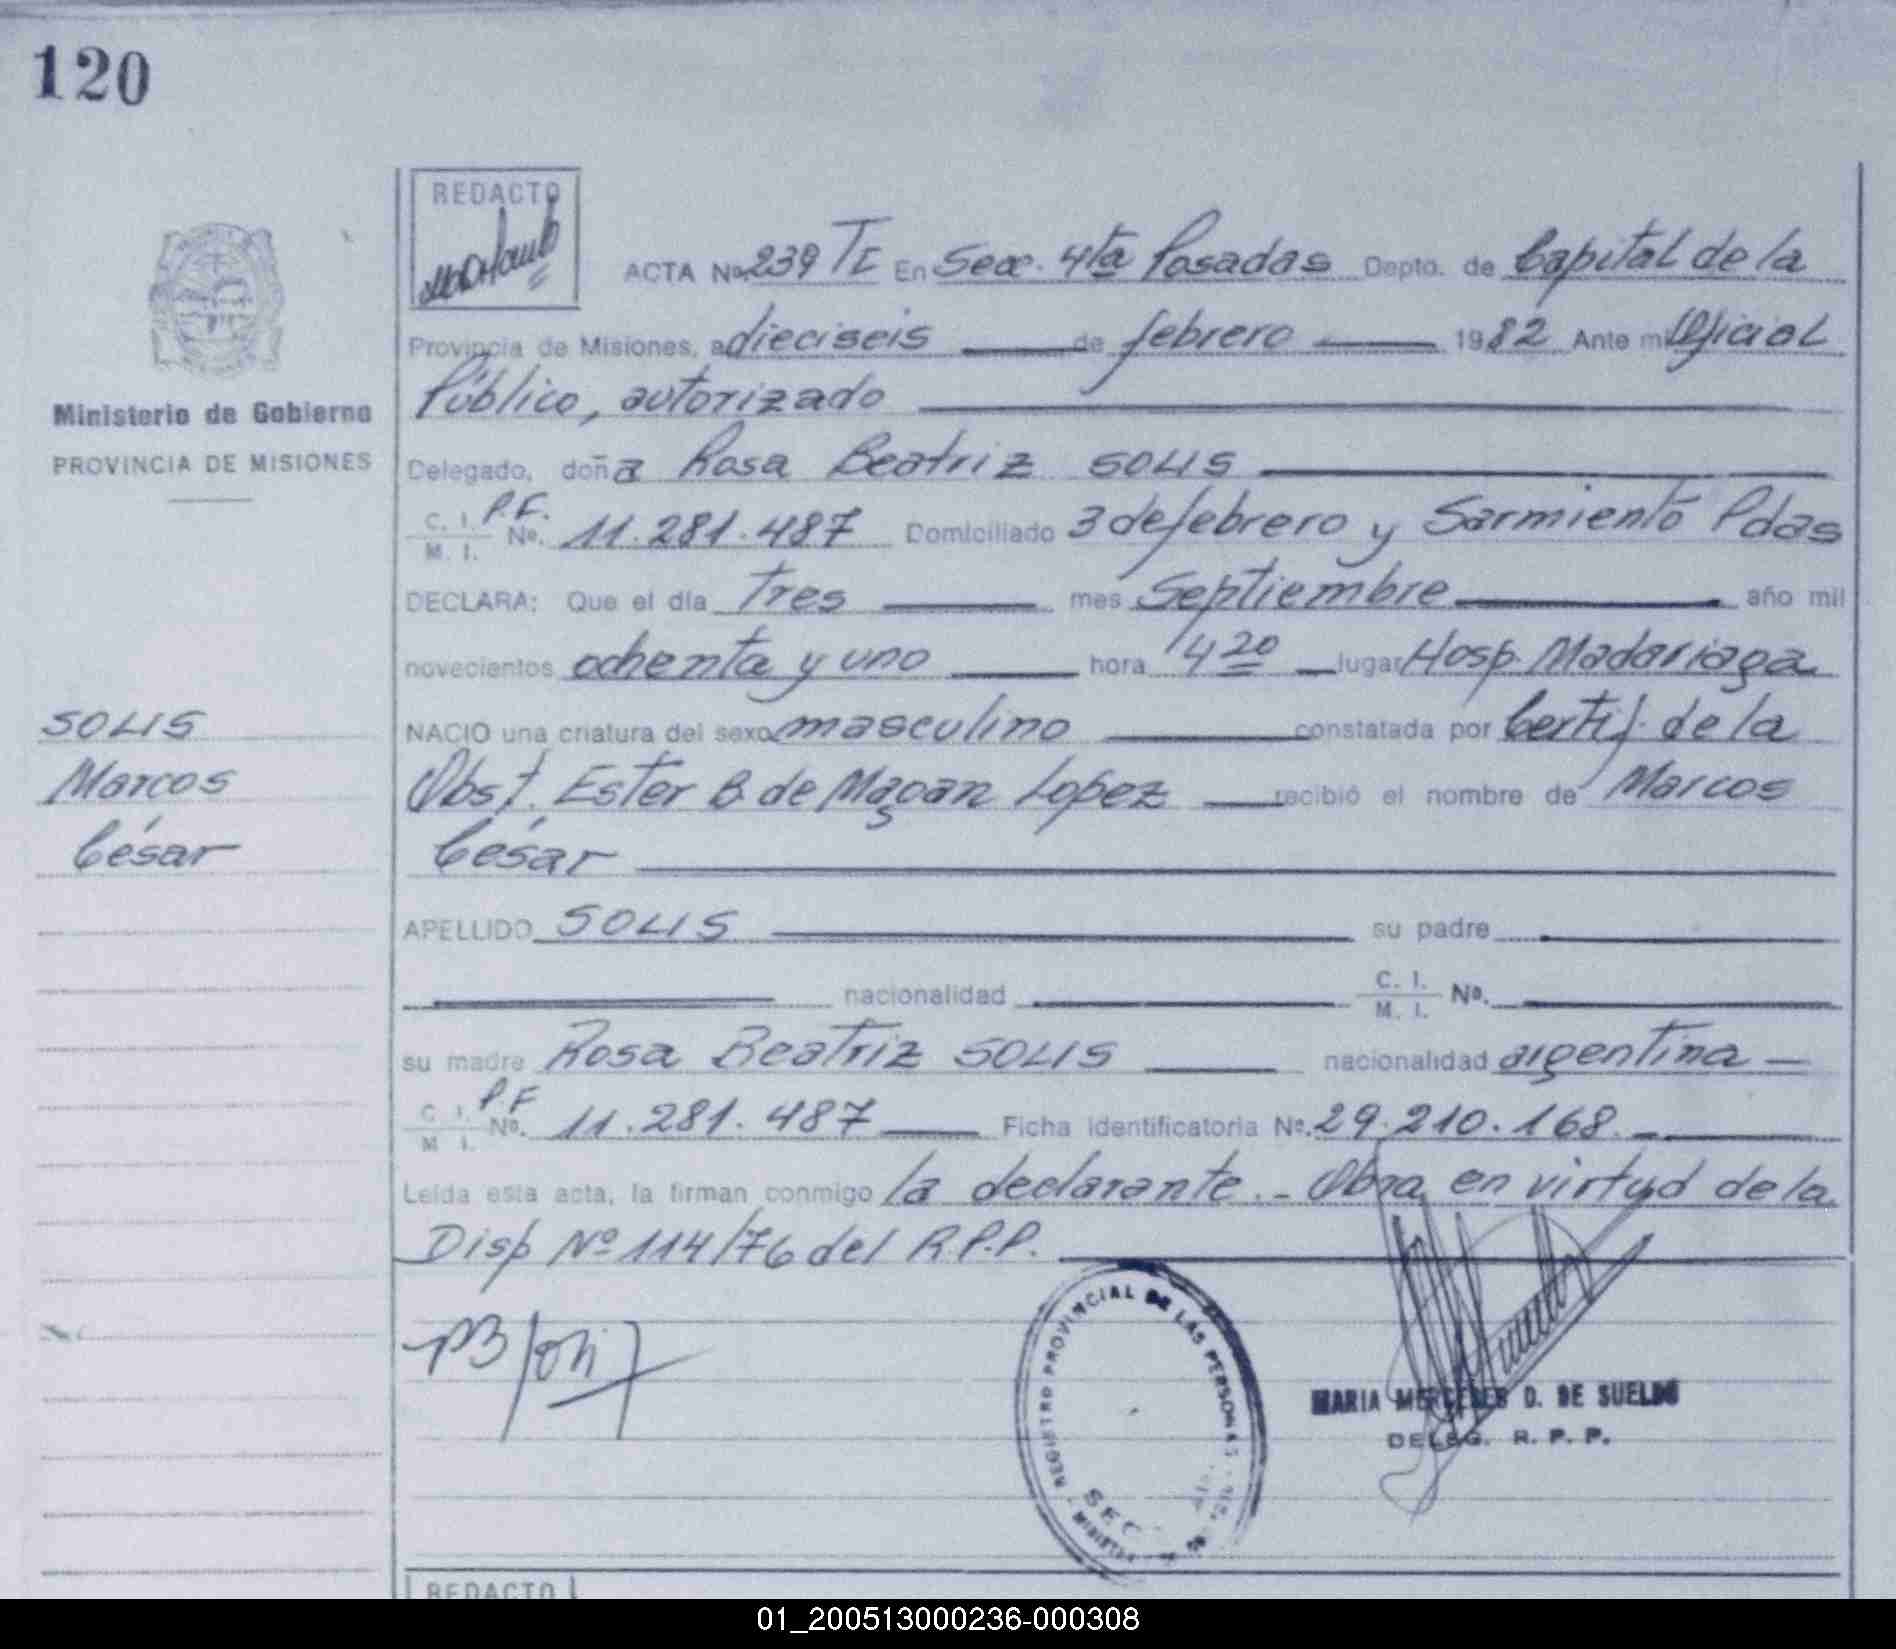 120
REDACTO
ACTA Nº 239 TE En Secc. 4ta Posadas Depto. de Capital de la
Provincia de Misiones, a dieciseis de febrero 1982 Ante mi Oficial
Público, autorizado
Ministerio de Gobierno
PROVINCIA DE MISIONES
Delegado, doña Rosa Beatriz SOLIS
C. I. M. I. P.F. Nº. 11.281.487 Domiciliado 3 de febrero y Sarmiento Pdas
DECLARA: Que el día Tres mes Septiembre año mil
novecientos ochenta y uno hora 4 20 lugar Hosp. Madariaga
SOLIS
NACIO una criatura del sexo masculino constatada por Certif. de la
Marcos
Obst. Ester B de Magan Lopez recibió el nombre de Marcos
César
César
APELLIDO SOLIS su padre
nacionalidad C. I. M. I. Nº.
su madre Rosa Beatriz SOLIS nacionalidad argentina
C. I. M. I. P.F Nº. 11.281.487 Ficha identificatoria Nº. 29.210.168.
Leída esta acta, la firman conmigo la declarante._ Obra en virtud de la
Disp Nº 114/76 del R.P.P.
REGISTRO PROVINCIAL DE LAS PERSONAS
SEC
MARIA MERCEDES D. DE SUELDO
DELEG. R. P. P.
REDACTO
01_200513000236-000308